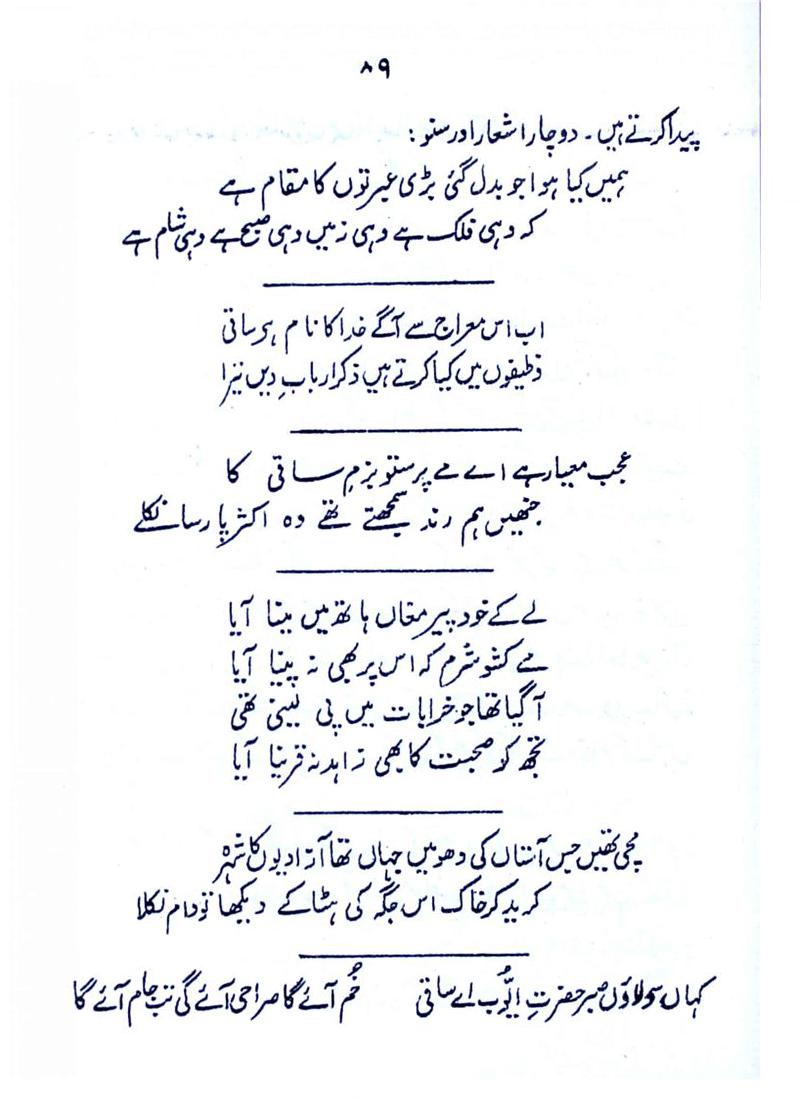 ۸۹
پیدا کرتے ہیں۔ دو چار اشعار اور سنو:
ہمیں کیا ہوا جو بدل گئی بڑی عبرتوں کا مقام ہے
کہ وہی فلک ہے وہی زمیں وہی صبح ہے وہی شام ہے
اب اس معراج سے آگے خدا کا نام ہر ساقی
وظیفوں میں کیا کرتے ہیں ذکر اربابِ دیں تیرا
عجب معیار ہے اے مے پرستو بزمِ ساقی کا
جنھیں ہم رند سمجھتے تھے وہ اکثر پارسا نکلے
لے کے خود پیرِ مغاں ہاتھ میں مینا آیا
مے کشو شرم کہ اس پر بھی نہ پینا آیا
آ گیا تھا جو خرابات میں پی لینی تھی
تجھ کو صحبت کا بھی زاہد نہ قرینا آیا
مچی تھیں جس آستاں کی دھومیں جہاں تھا آزادیوں کا شہرہ
کرید کر خاک اس جگہ کی ہٹا کے دیکھا تو دام نکلا
کہاں سے لاؤں صبر حضرتِ ایوّب اے ساقی خُم آئے گا صراحی آئے گی تب جام آئے گا